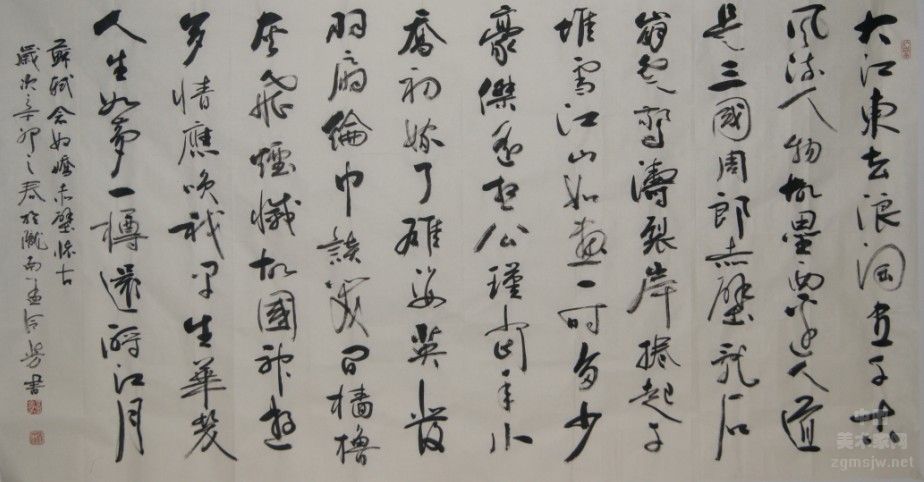 大江東去浪淘盡千古
風流人物故壘西邊人道
是三國周郎赤壁亂石
崩雲驚濤裂岸捲起千
堆雪江山如畫一時多少
豪傑遙想公瑾當年小
喬初嫁了雄姿英發
羽扇綸巾談笑間檣櫓
灰飛煙滅故國神遊
多情應咲我早生華髮
人生如夢一樽還酹江月
蘇軾念奴嬌赤壁懷古
歲次辛卯之春於隴西書
美术家网
zgmsjw.net